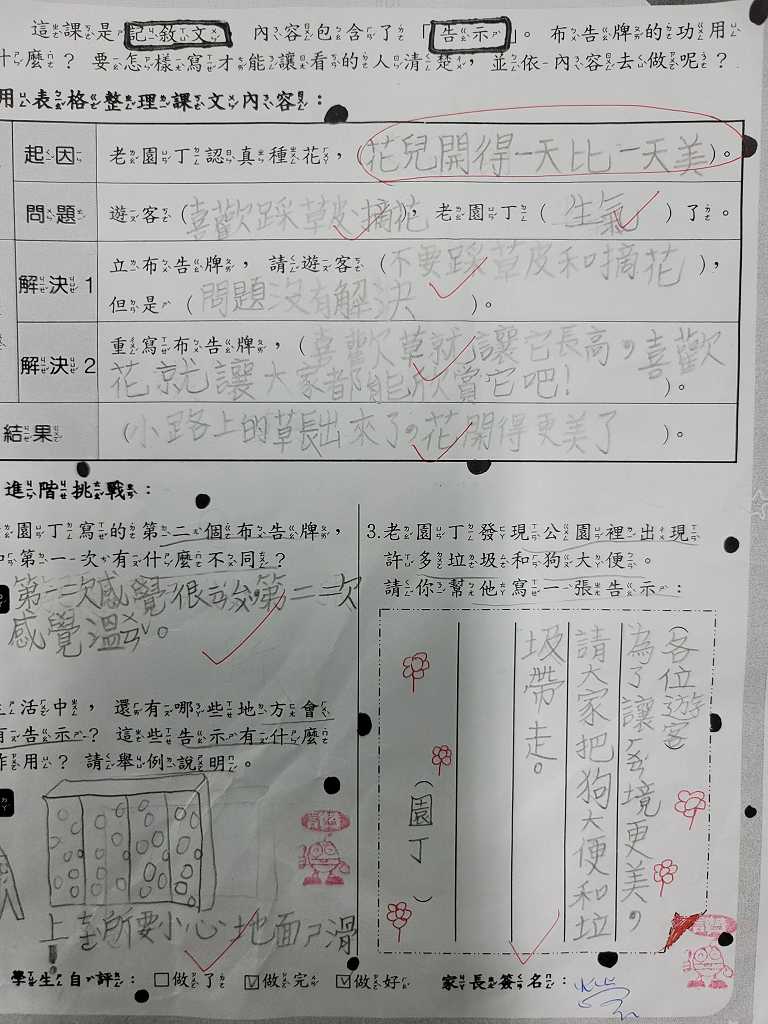 這課是記敘文 內容包含了「告示」。 布告牌的功用
什麼？ 要怎樣寫才能讓看的人清楚，並依內容去做呢？
用表格整理課文內容：
起因 老園丁認真種花，(花兒開得一天比一天美)。
問題 遊客(喜歡踩草皮摘花)，老園丁( 生氣 )了。
解決1 立布告牌，請遊客(不要踩草皮和摘花)，
但是(問題沒有解決 )。
解決2 重寫布告牌，(喜歡草就讓它長高，喜歡
花就讓大家都能欣賞它吧！ )。
結果 (小路上的草長出來了，花開得更美了 )。
進階挑戰：
園丁寫的第二個布告牌，
和第一次有什麼不同？
第一次感覺很ㄒㄩㄥ第二次
感覺溫ㄋㄨㄢˇ。
生活中，還有哪些地方會
有告示？這些告示有什麼
作用？請舉例說明。
上ㄘㄜˋ所要小心地面ㄕ滑
3.老園丁發現公園裡出現
許多垃圾和狗大便。
請你幫他寫一張告示：
(各位遊客)
為了讓ㄏㄨㄢˊ境更美，
請大家把狗大便和垃
圾帶走。
(園丁)
學生自評： □做了 ☑做完 ☑做好 家長簽名：